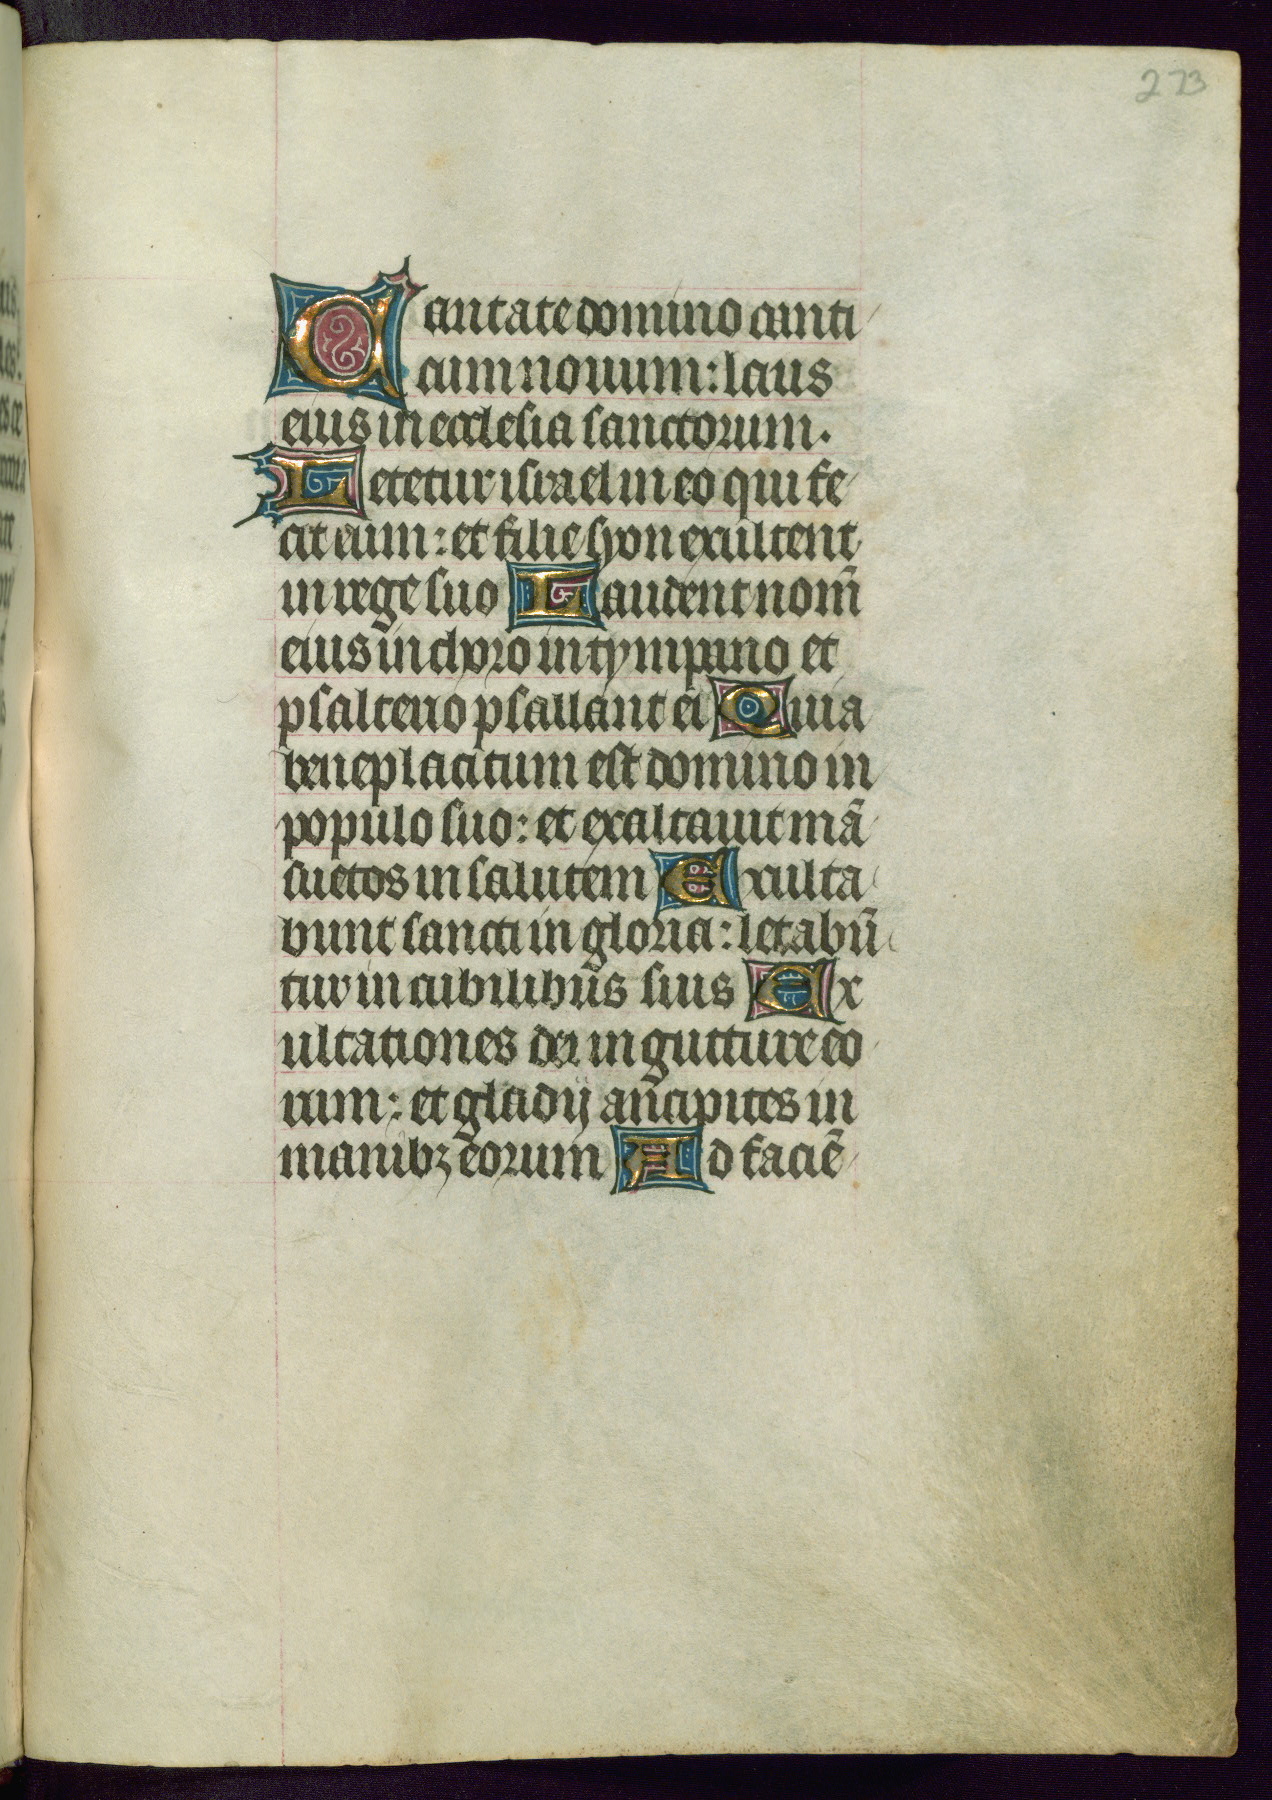 273
Cantate domino canti
cum nouum: laus
eius in ecclesia sanctorum.
Letetur israel in eo qui fe
cit eum: et filie syon exultent
in rege suo Laudent nom̄
eius in choro in tympano et
psalterio psallant ei Quia
beneplacitum est domino in
populo suo: et exaltauit mā
suetos in salutem Exulta
bunt sancti in gloria: letabū
tur in cubilibus suis Ex
ultationes dei in gutture eo
rum: et gladij ancipites in
manibꝫ eorum Ad faciē